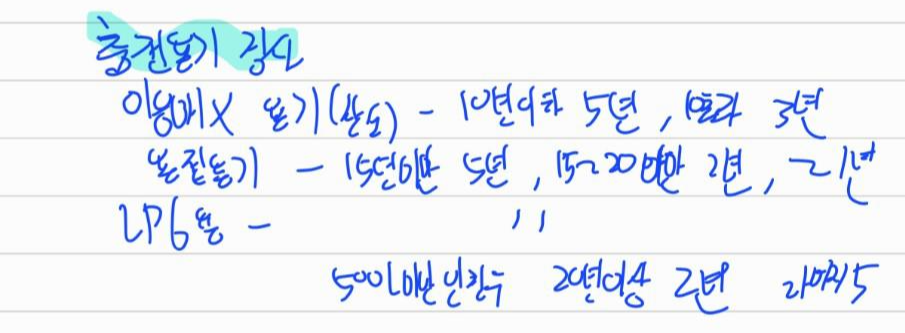 충전용기 검사
이음매X 용기(산소) - 10년이하 5년, 10초과 3년
용접용기 - 15년미만 5년, 15~20미만 2년, ~ 1년
LPG용 - 〃
500L미만 인경우 20년이상 2년 나머지5